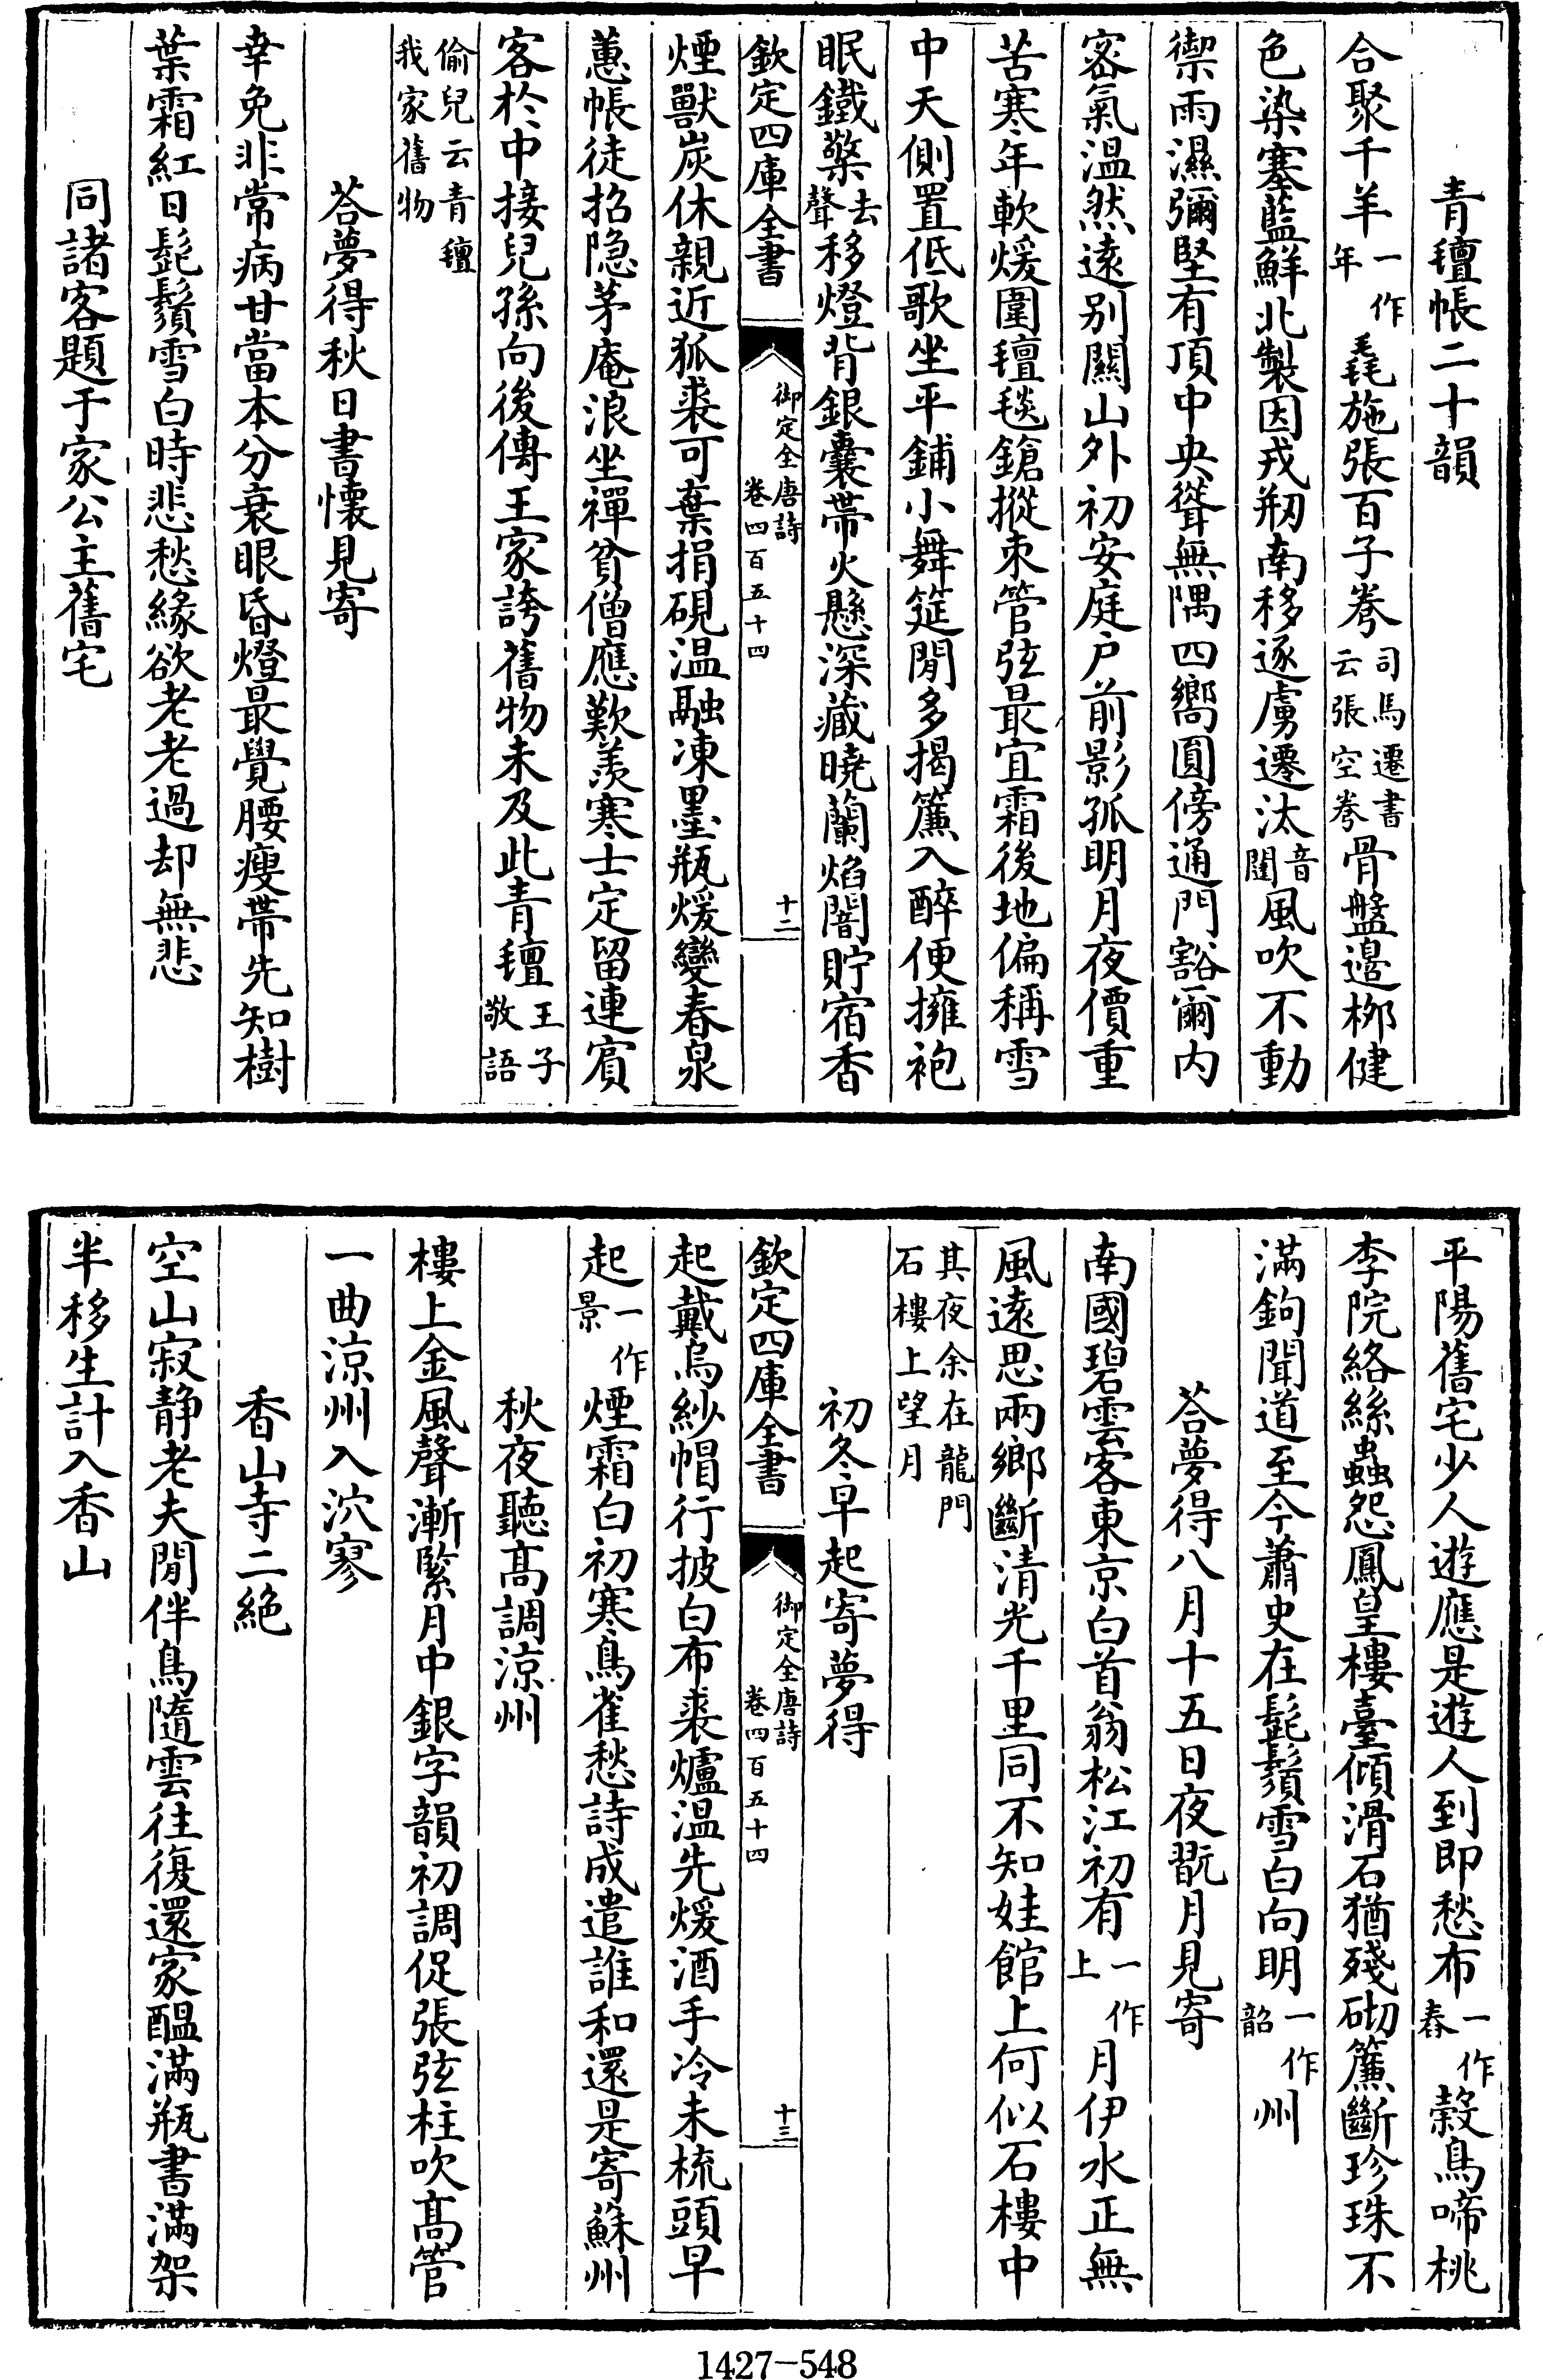 青氊帳二十韻
合聚千羊一作年毳施張百子弮司馬遷書云張空弮骨盤邉栁健
色染塞藍鮮北製因戎剏南移逐虜遷汰音闥風吹不動
禦雨濕彌堅有頂中央聳無隅四嚮圓傍通門豁爾内
宻氣温然逺别關山外初安庭户前影孤明月夜價重
苦寒年軟煖圍氊毯鎗摐束管弦最宜霜後地偏稱雪
中天側置低歌坐平鋪小舞筵閒多揭簾入醉便擁袍
眠鐵檠去聲移燈背銀囊帶火懸深藏曉蘭焰闇貯宿香
欽定四庫全書
御定全唐詩
卷四百五十四
十二
煙獸炭休親近狐裘可棄捐硯温融凍墨瓶煖變春泉
蕙帳徒招隐茅庵浪坐禪貧僧應歎羨寒士定留連賔
客於中接兒孫向後傳王家誇舊物未及此青氊王子敬語
偷兒云青氊我家舊物
荅夢得秋日書懷見寄
幸免非常病甘當本分衰眼昏燈最覺腰瘦帶先知樹
葉霜紅日髭鬚雪白時悲愁緣欲老老過却無悲
同諸客題于家公主舊宅
平陽舊宅少人遊應是遊人到即愁布一作春穀鳥啼桃
李院絡絲蟲怨鳳皇樓臺傾滑石猶殘砌簾斷珍珠不
滿鉤聞道至今蕭史在髭鬚雪白向明一作韶州
荅夢得八月十五日夜翫月見寄
南國碧雲客東京白首翁松江初有一作上月伊水正無
風逺思兩鄉斷清光千里同不知娃館上何似石樓中
其夜余在龍門石樓上望月
初冬早起寄夢得
欽定四庫全書
御定全唐詩
卷四百五十四
十三
起戴烏紗帽行披白布裘爐温先煖酒手冷未梳頭早
起一作景煙霜白初寒鳥雀愁詩成遣誰和還是寄蘇州
秋夜聽髙調涼州
樓上金風聲漸緊月中銀字韻初調促張弦柱吹髙管
一曲涼州入泬寥
香山寺二絶
空山寂静老夫閒伴鳥隨雲往復還家醖滿瓶書滿架
半移生計入香山
1427-548